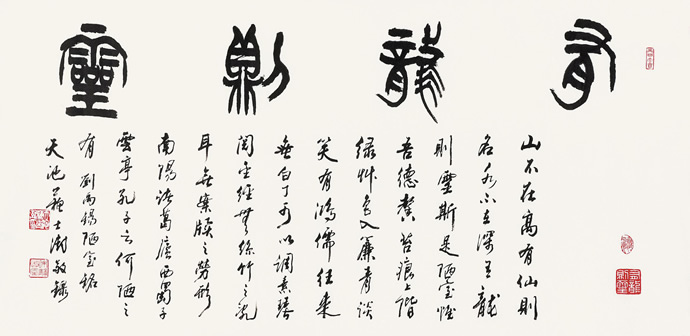 有龍則靈
山不在高有仙則
名水不在深有龍
則靈斯是陋室惟
吾德馨苔痕上階
綠艸色入簾青談
笑有鴻儒往来
無白丁可以調素琴
閱金經無絲竹之亂
耳無案牘之勞形
南陽諸葛廬西蜀子
雲亭孔子云何陋之
有 劉禹錫陋室銘
天池蘇士澍敬錄
有龍則靈